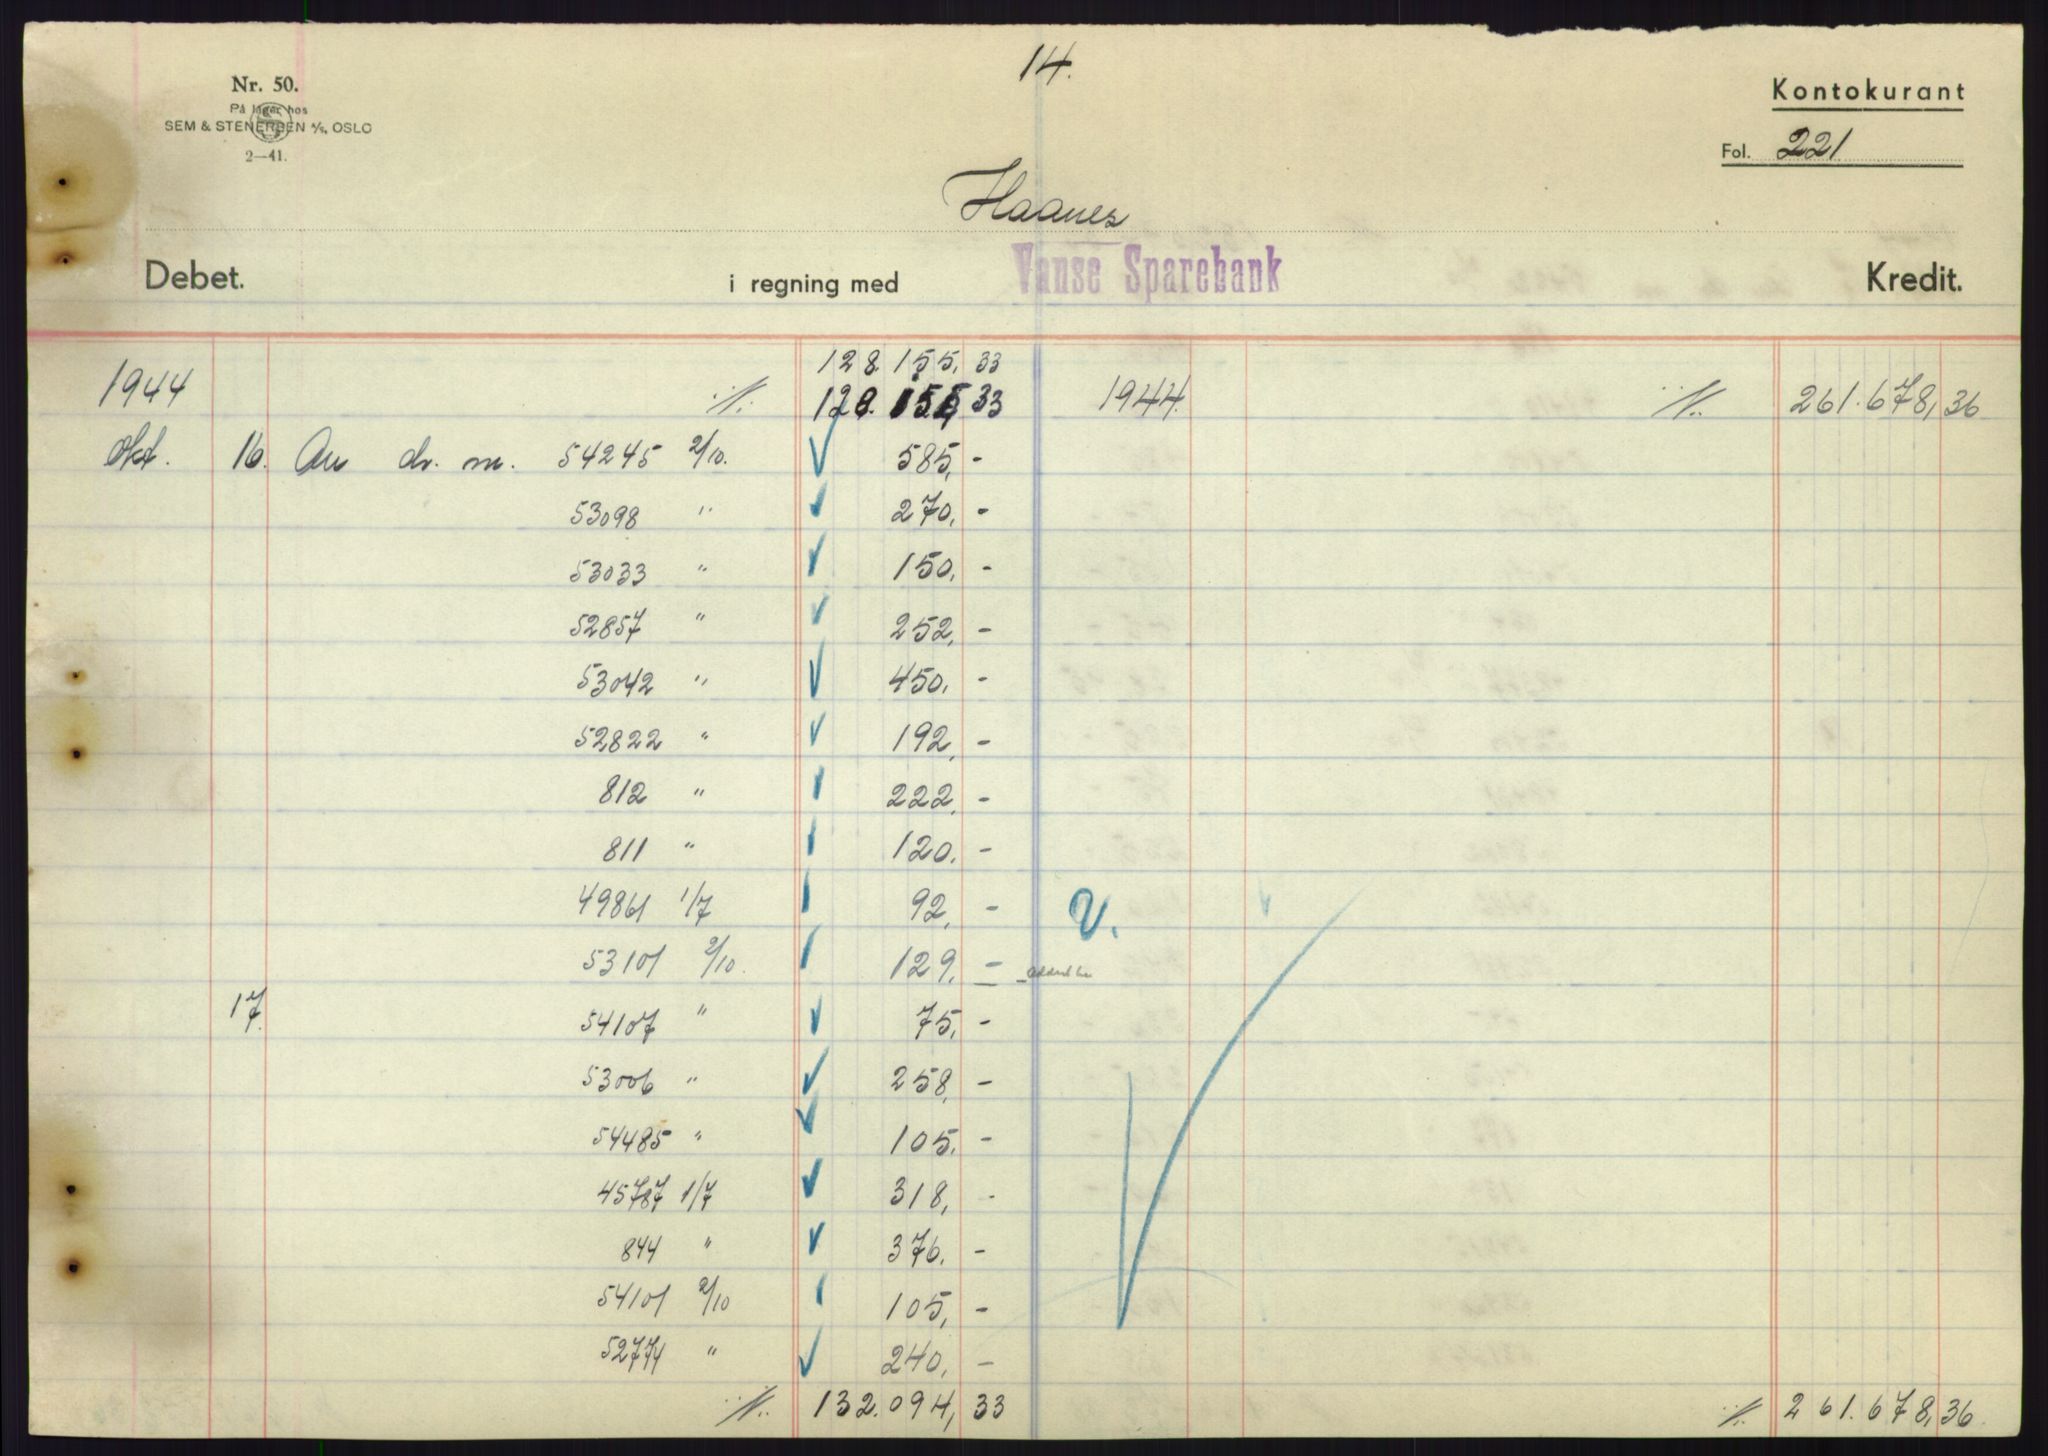 14.
Nr. 50.
På lager hos
SEM & STENERSEN A/S, OSLO
2—41.
Kontokurant
Fol. 221
Haanes
Debet. i regning med Vanse Sparebank Kredit.
128.155,33
1944 ·/. 128.155,33 1944. ·/. 261.678,36
Okt. 16. An dr. m. 54245 2/10. 585,-
53098 " 270,-
53033 " 150,-
52857 " 252,-
53042 " 450,-
52822 " 192,-
812 " 222,-
811 " 120,-
49861 1/7 92,- V.
53101 2/10. 129,-
17. 54107 " 75,-
53006 " 258,-
54485 " 105,-
45787 1/7 318,-
844 " 376,-
54101 2/10 105,-
52774 " 240,-
·/. 132.094,33 ·/. 261.678,36